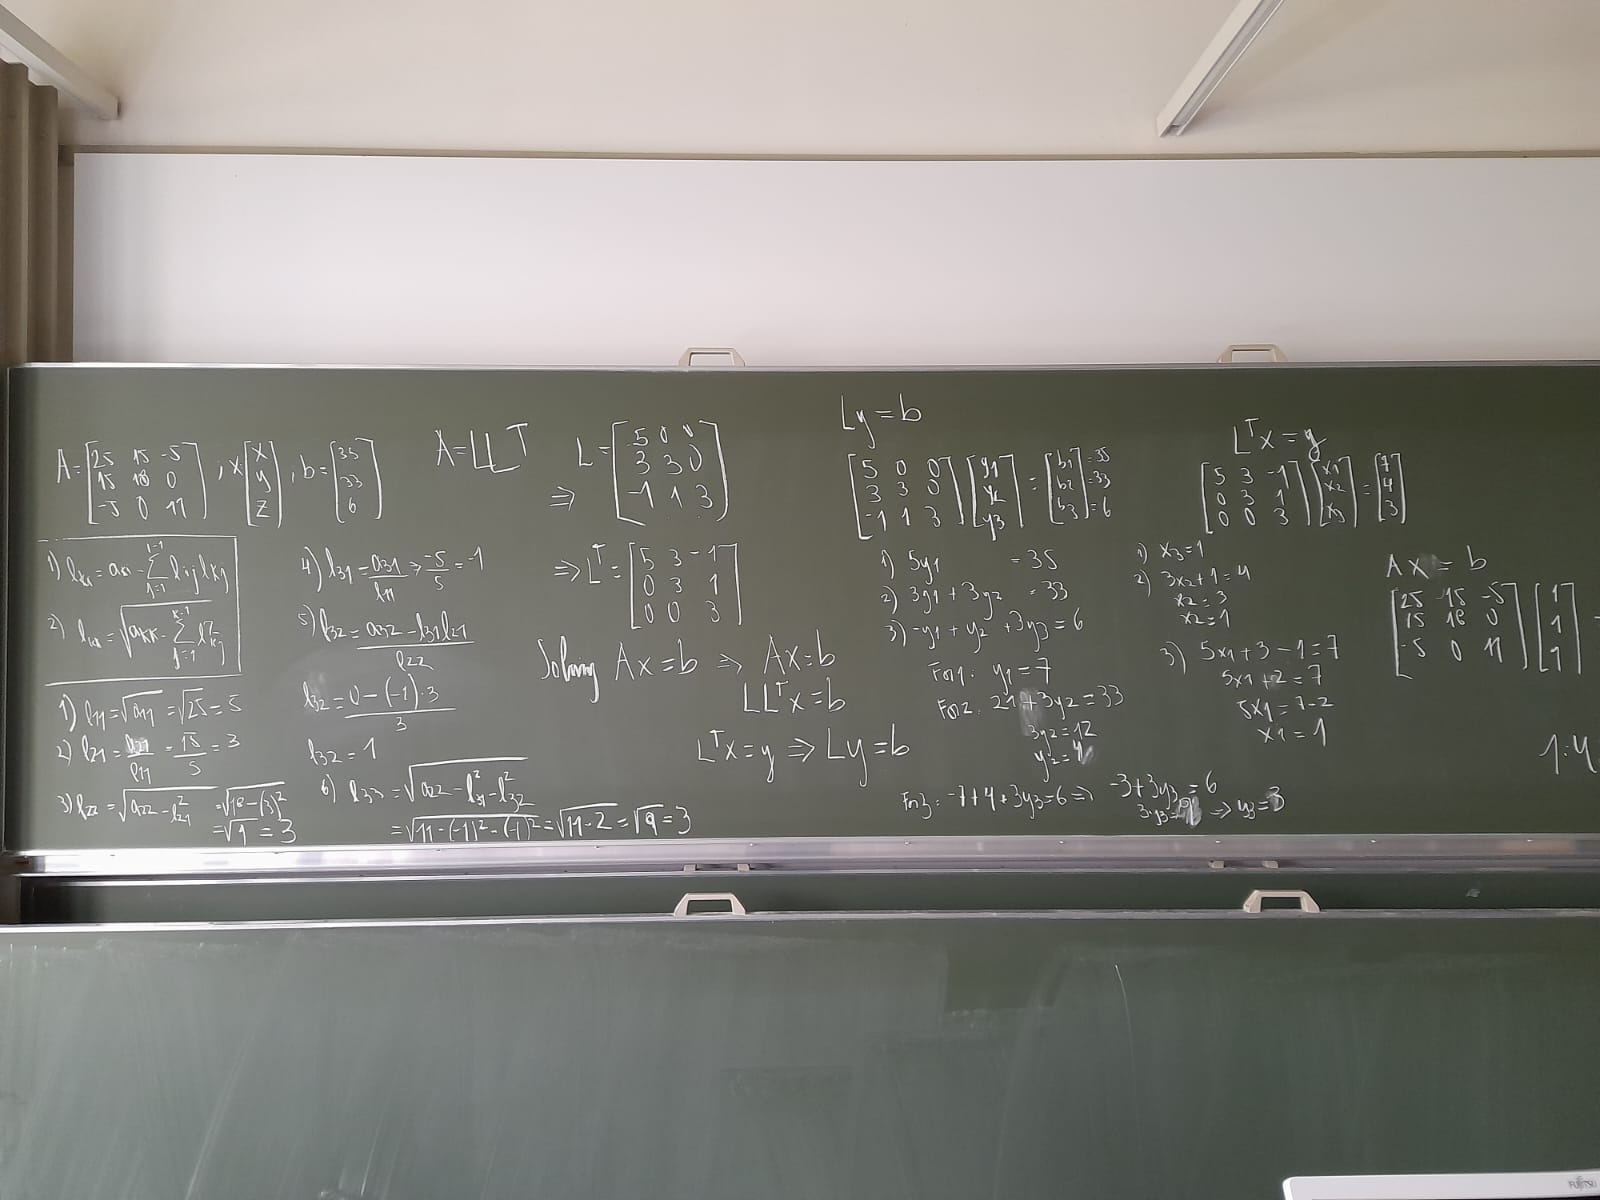 A=[25 15 -5; 15 18 0; -5 0 11], x[x; y; z], b=[35; 33; 6]
A=LLT
⇒ L=[5 0 0; 3 3 0; -1 1 3]
⇒ L^T=[5 3 -1; 0 3 1; 0 0 3]
2) l_kk=√(a_kk-∑_{j=1}^{k-1} l²_kj)
1) l11=√a11=√25=5
2) l21=a21/l11=15/5=3
3) l22=√(a22-l²21)=√(18-(3)²
=√9=3
4) l31=a31/l11→-5/5=-1
5) l32=(a32-l31l21)/l22
l32=(0-(-1)·3)/3
l32=1
6) l33=√(a22-l²31-l²32)
=√(11-(-1)²-(-1)²)=√(11-2)=√9=3
Solving Ax=b ⇒ Ax=b
LL^Tx=b
L^Tx=y ⇒ Ly=b
Ly=b
[5 0 0; 3 3 0; -1 1 3][y1; y2; y3]=[b1; b2; b3] =35 =33 =6
1) 5y1 =35
2) 3y1+3y2 =33
3) -y1+y2+3y3=6
For1: y1=7
For2: 21+3y2=33
3y2=12
y2=4
For3: -7+4+3y3=6 ⇒ -3+3y3=6
3y3=9 ⇒ y3=3
L^Tx=y
[5 3 -1; 0 3 1; 0 0 3][x1; x2; x3]=[7; 4; 3]
1) x3=1
2) 3x2+1=4
x2=3
x2=1
3) 5x1+3-1=7
5x1+2=7
5x1=7-2
x1=1
Ax=b
[25 15 -5; 15 18 0; -5 0 11][1; 1; 1]
FUJITSU